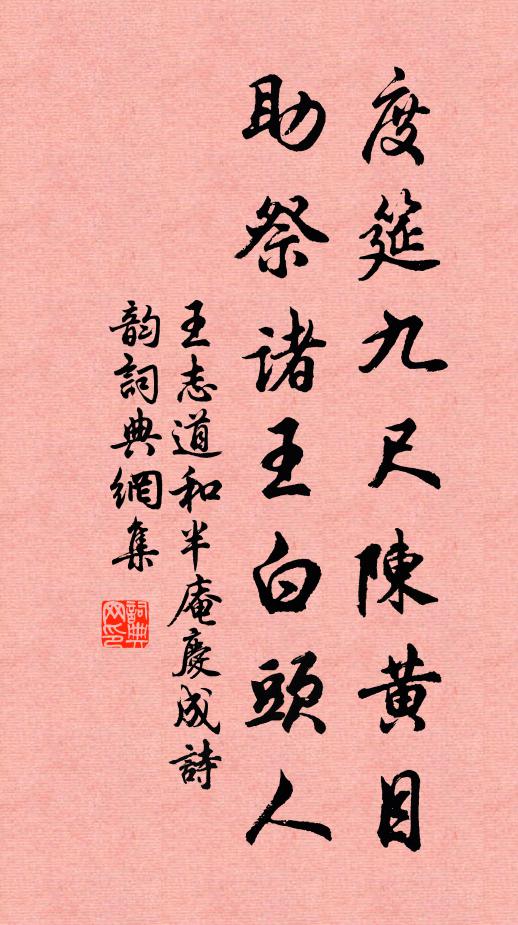 度筵九尺陳黄目
助祭諸王白頭人
王志道和半庵慶成詩
韵詞典網集
詞典
网印